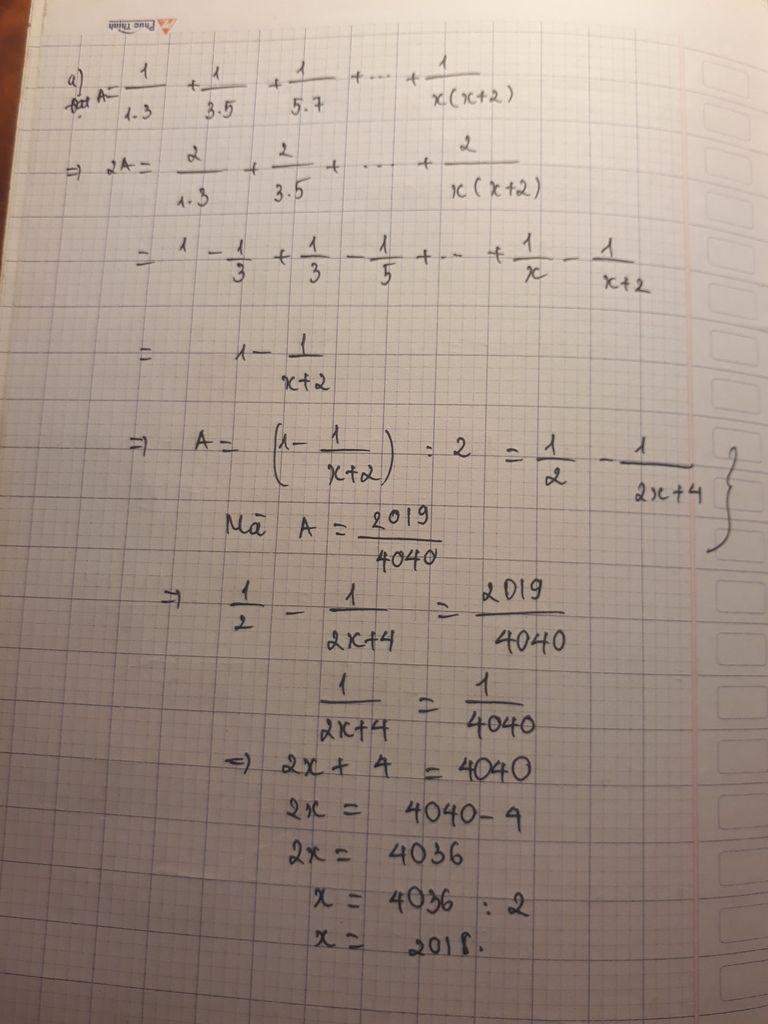 Phuc Thinh
a) Đặt A = 1/1.3 + 1/3.5 + 1/5.7 + ... + 1/x(x+2)
=> 2A = 2/1.3 + 2/3.5 + ... + 2/x(x+2)
= 1 - 1/3 + 1/3 - 1/5 + ... + 1/x - 1/x+2
= 1 - 1/x+2
=> A = (1 - 1/x+2) : 2 = 1/2 - 1/2x+4 }
Mà A = 2019/4040
=> 1/2 - 1/2x+4 = 2019/4040
1/2x+4 = 1/4040
=> 2x + 4 = 4040
2x = 4040 - 4
2x = 4036
x = 4036 : 2
x = 2018.